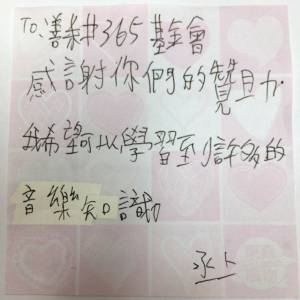 To:善耕365基金會
感謝你們的贊助
我希望可以學習到許多的
音樂知識
丞上